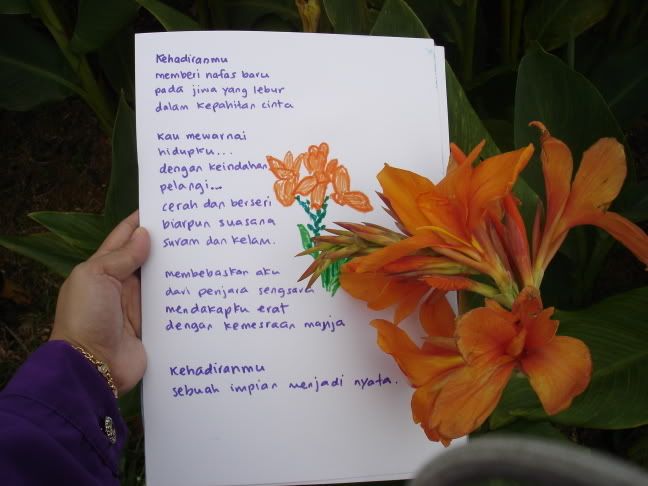 Kehadiranmu
memberi nafas baru
pada jiwa yang lebur
dalam kepahitan cinta
Kau mewarnai
hidupku...
dengan keindahan
pelangi...
cerah dan berseri
biarpun suasana
suram dan kelam.
membebaskan aku
dari penjara sengsara
mendakapku erat
dengan kemesraan manja
Kehadiranmu
sebuah impian menjadi nyata.